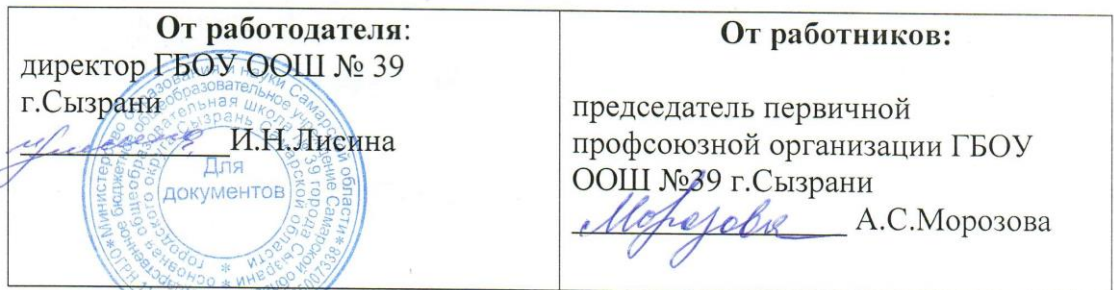 От работодателя:
директор ГБОУ ООШ № 39
г.Сызрани
И.Н.Лисина
Для
документов
От работников:
председатель первичной
профсоюзной организации ГБОУ
ООШ №39 г.Сызрани
Морозова А.С.Морозова